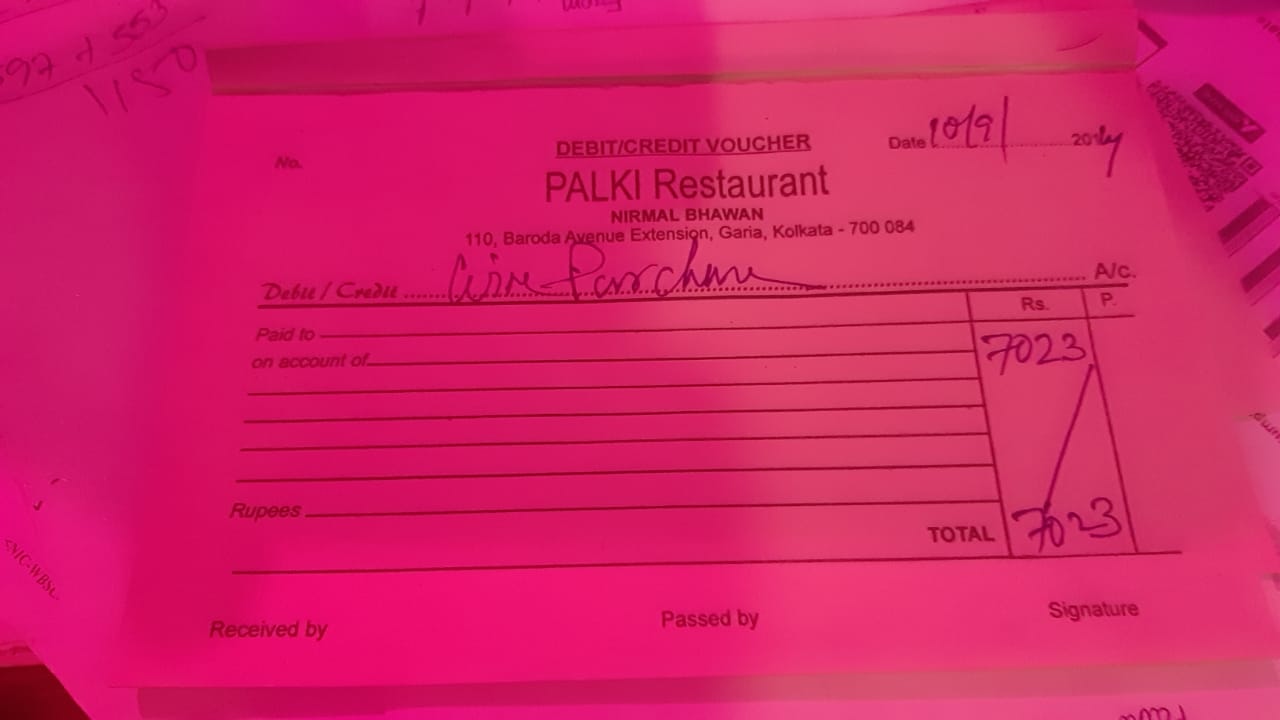 597 + 553
1150
No.
DEBIT/CREDIT VOUCHER
Date 10/9/ 2014
PALKI Restaurant
NIRMAL BHAWAN
110, Baroda Avenue Extension, Garia, Kolkata - 700 084
Debit / Credit A/c.
Rs. P.
Paid to
on account of 7023
Rupees
TOTAL 7023
Received by Passed by Signature